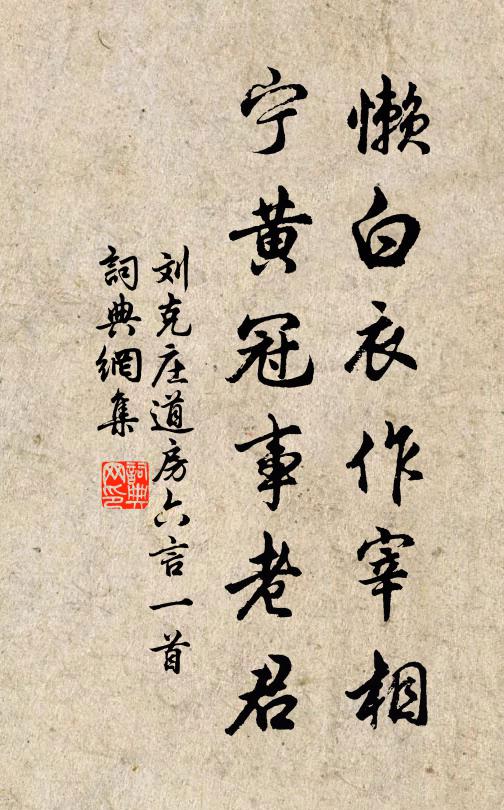 懒白衣作宰相
宁黄冠事老君
刘克庄道房六言一首
詞典網集
詞典网印